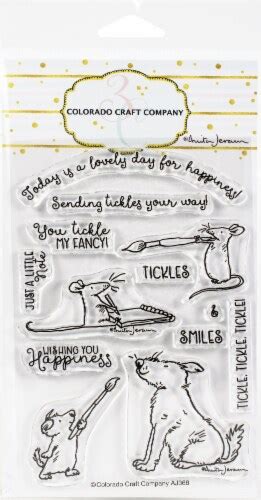 COLORADO CRAFT COMPANY
©Anita Jeram
Today is a lovely day for happiness!
Sending tickles your way!
You tickle
MY FANCY!
JUST A LITTLE
Note
TICKLES
©Anita Jeram
&
SMILES
TICKLE, TICKLE, TICKLE!
WISHING YOU
Happiness
©Anita Jeram
©Colorado Craft Company AJ368